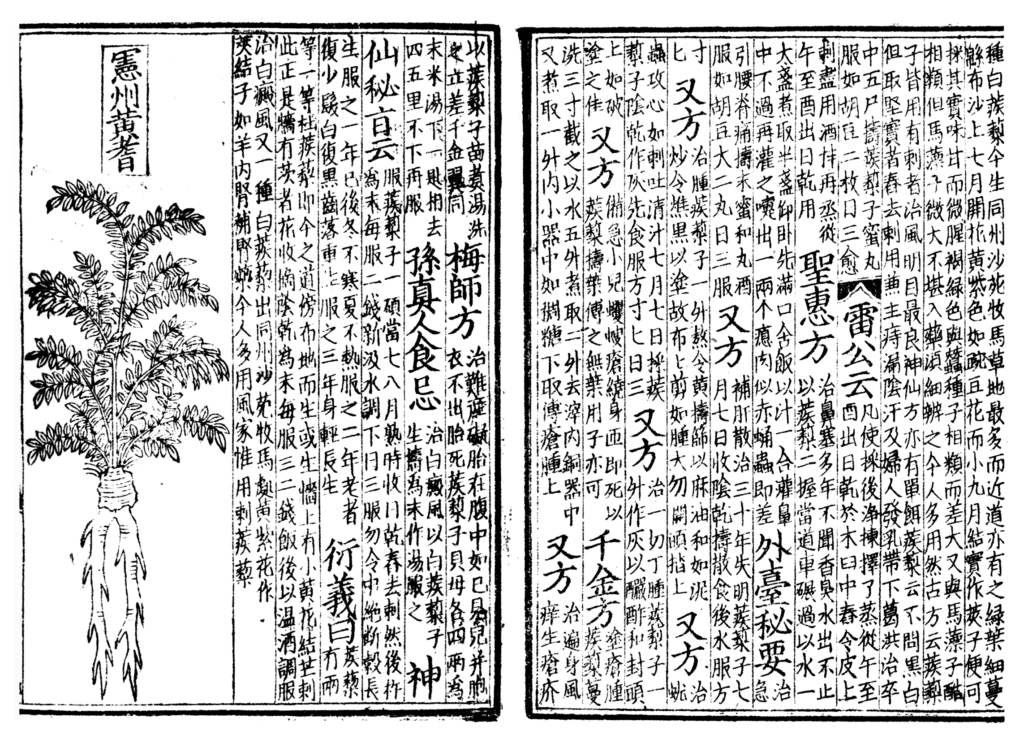 種白蒺藜今生同州沙苑牧馬草地最多而近道亦有之綠葉細蔓
緜布沙上七月開花黃紫色如豌豆花而小九月結實作莢子便可
採其實味甘而微腥褐綠色與蠶種子相類而差大又與馬薸子酷
相類但馬薸子微大不堪入藥須細辨之今人多用然古方云蒺藜
子皆用有刺者治風明目最良神仙方亦有單餌蒺藜云不問黑白
但取堅實者舂去刺用兼主痔漏陰汗及婦人發乳帶下葛洪治卒
中五尸擣蒺藜子蜜丸
服如胡豆二枚日三愈
雷公云
凡使採後淨揀擇了蒸從午至
酉出日乾於木臼中舂令皮上
刺盡用酒拌再蒸從
午至酉出日乾用
聖惠方
治鼻塞多年不聞香臭水出不止
以蒺藜二握當道車碾過以水一
大盞煮取半盞仰臥先滿口含飯以汁一合灌鼻
中不過再灌之嚏出一兩个瘜肉似赤蛹蟲即差
外臺秘要
治
急
引腰脊痛擣末蜜和丸酒
服如胡豆大二丸日三服
又方
補肝散治三十年失明蒺藜子七
月七日收陰乾擣散食後水服方
寸
匕
又方
治腫蒺藜子一升熬令黃擣篩以麻油和如泥
炒令焦黑以塗故布上剪如腫大勿開頭搨上
又方
治
蚘
蟲攻心如刺吐清汁七月七日採蒺
藜子陰乾作灰先食服方寸匕日三
又方
治一切丁腫蒺藜子一
升作灰以釅酢和封頭
上如破
塗之佳
又方
備急小兒蠼螋瘡繞身匝即死以
蒺藜擣葉傅之無葉用子亦可
千金方
塗瘡腫
蒺藜蔓
洗三寸截之以水五升煮取二升去滓內銅器中
又煮取一升內小器中如稠糖下取傅瘡腫上
又方
治遍身風
痒生瘡疥
以蒺藜子苗煮湯洗
之立差千金翼同
梅師方
治難產礙胎在腹中如已見兒并胞
衣不出胎死蒺藜子貝母各四兩為
末米湯下一匙相去
四五里不下再服
孫真人食忌
治白癜風以白蒺藜子
生擣為末作湯服之
神
仙秘旨云
服蒺藜子一碩當七八月熟時收日乾舂去刺然後杵
為末每服二錢新汲水調下日三服勿令中絕斷穀長
生服之一年已後冬不寒夏不熱服之二年老者
復少髮白復黑齒落重生服之三年身輕長生
衍義曰
蒺藜
有兩
等一等杜蒺藜即今之道傍布地而生或生牆上有小黃花結芒刺
此正是牆有茨者花收摘陰乾為末每服三二錢飯後以溫酒調服
治白癜風又一種白蒺藜出同州沙苑牧馬處黃紫花作
莢結子如羊內腎補腎藥今人多用風家惟用刺蒺藜
憲州黃耆